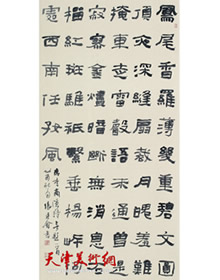 鳳尾香羅薄幾重碧文圓
頂夜深縫扇裁月魄羞難
掩車走雷聲語未通曾是
寂寥金燼暗斷無消息石
榴紅斑騅只繫垂楊岸何
處西南任好風
天津美术网